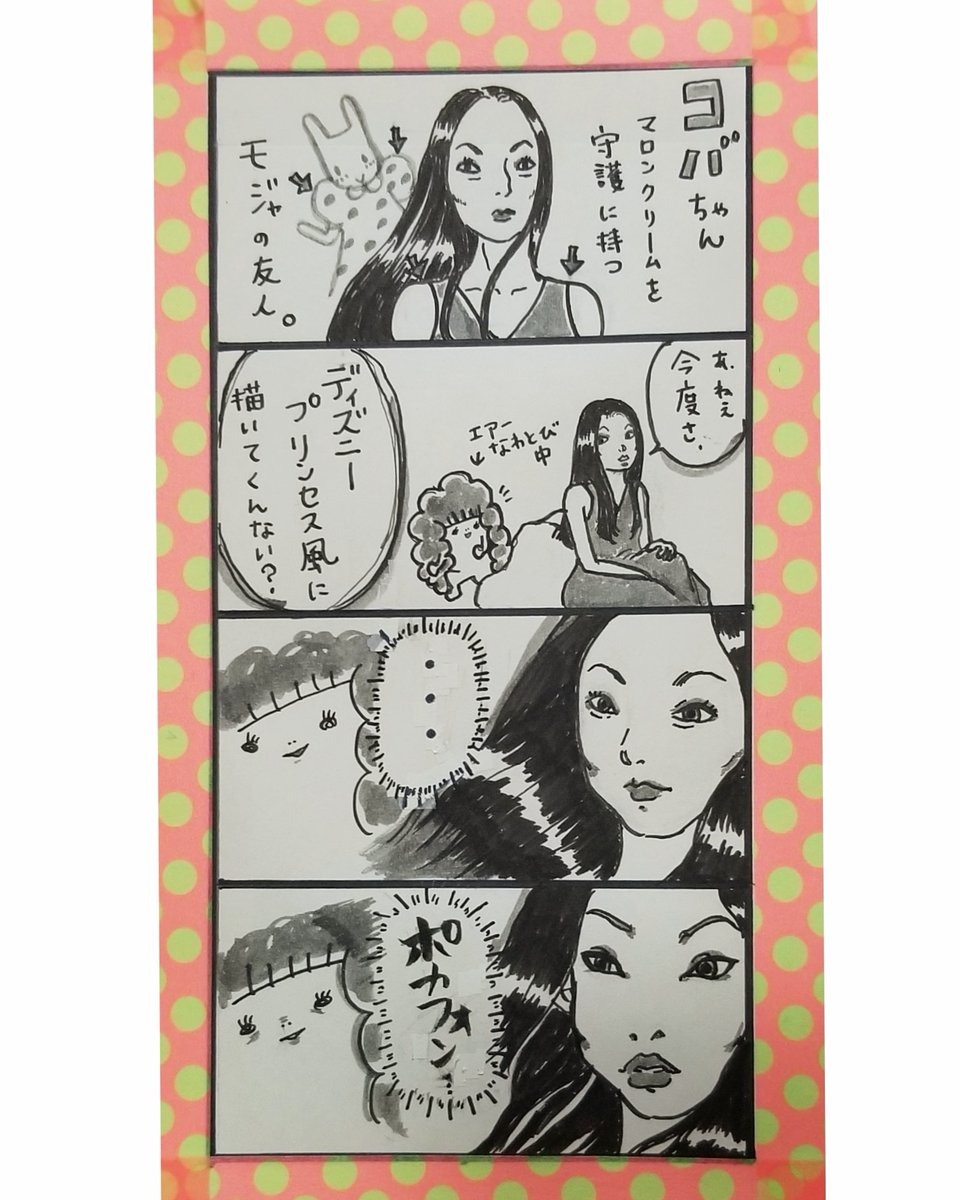 コバちゃん
マロンクリームを
守護に持つ
モジャの友人。
あ、ねぇ
今度さ、
エアー
なわとび
中
ディズニー
プリンセス風に
描いてくんない?
・・・
ポカフォン…